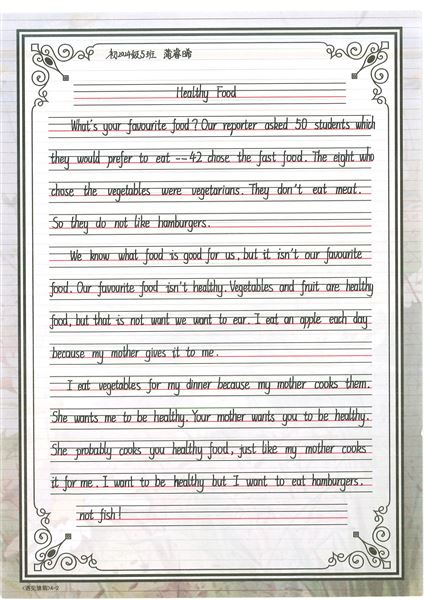 初2024级5班 蒲睿晞
Healthy Food
What's your favourite food? Our reporter asked 50 students which
they would prefer to eat --42 chose the fast food. The eight who
chose the vegetables were vegetarians. They don't eat meat.
So they do not like hamburgers.
We know what food is good for us, but it isn't our favourite
food. Our favourite food isn't healthy. Vegetables and fruit are healthy
food, but that is not want we want to ear. I eat an apple each day
because my mother gives it to me.
I eat vegetables for my dinner because my mother cooks them.
She wants me to be healthy. Your mother wants you to be healthy.
She probably cooks you healthy food, just like my mother cooks
it for me. I want to be healthy but I want to eat hamburgers.
not fish!
A-2